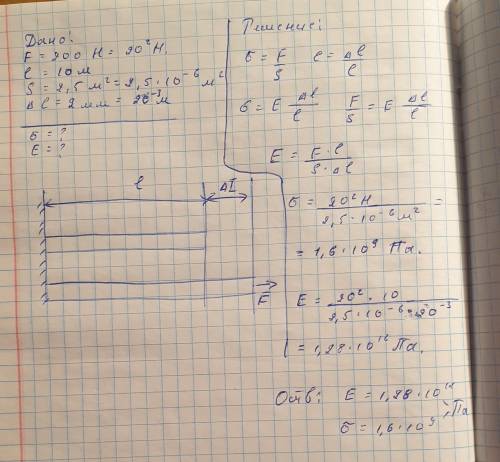 Дано:
F = 200 Н = 20² Н.
l = 10 м
S = 2,5 м² = 2,5 · 10⁻⁶ м²
Δl = 2 мм = 20⁻³ м
σ = ?
E = ?
l
Δl
F
Решение:
σ = F/S ε = Δl/l
σ = E Δl/l F/S = E Δl/l
E = F · l / S · Δl
σ = 20² Н / 2,5 · 10⁻⁶ м² =
= 1,6 · 10⁹ Па.
E = 20² · 10 / 2,5 · 10⁻⁶ · 20⁻³
= 1,28 · 10¹² Па.
Отв: E = 1,28 · 10¹²
σ = 1,6 · 10⁹ ; Па